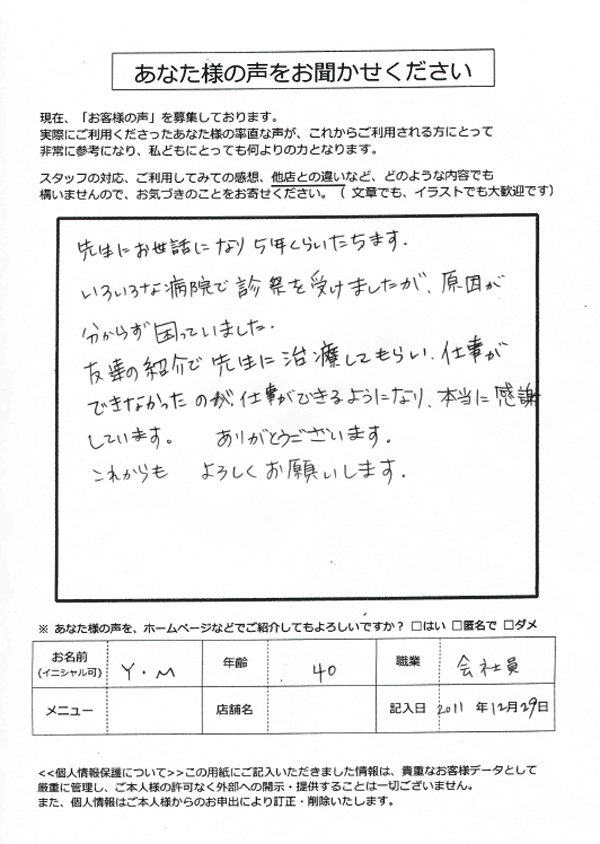 あなた様の声をお聞かせください
現在、「お客様の声」を募集しております。
実際にご利用くださったあなた様の率直な声が、これからご利用される方にとって
非常に参考になり、私どもにとっても何よりの力となります。
スタッフの対応、ご利用してみての感想、他店との違いなど、どのような内容でも
構いませんので、お気づきのことをお寄せください。（ 文章でも、イラストでも大歓迎です）
先生にお世話になり5年くらいたちます.
いろいろな病院で診察を受けましたが、原因が
分からず困っていました.
友達の紹介で先生に治療してもらい、仕事が
できなかったのが、仕事ができるようになり、本当に感謝
しています。 ありがとうございます.
これからも よろしくお願いします.
※ あなた様の声を、ホームページなどでご紹介してもよろしいですか？ □はい □匿名で □ダメ
お名前 (イニシャル可) Y・M 年齢 40 職業 会社員
メニュー 店舗名 記入日 2011 年12月29日
<<個人情報保護について>>この用紙にご記入いただきました情報は、貴重なお客様データとして
厳重に管理し、ご本人様の許可なく外部への開示・提供することは一切ございません。
また、個人情報はご本人様からのお申出により訂正・削除いたします。